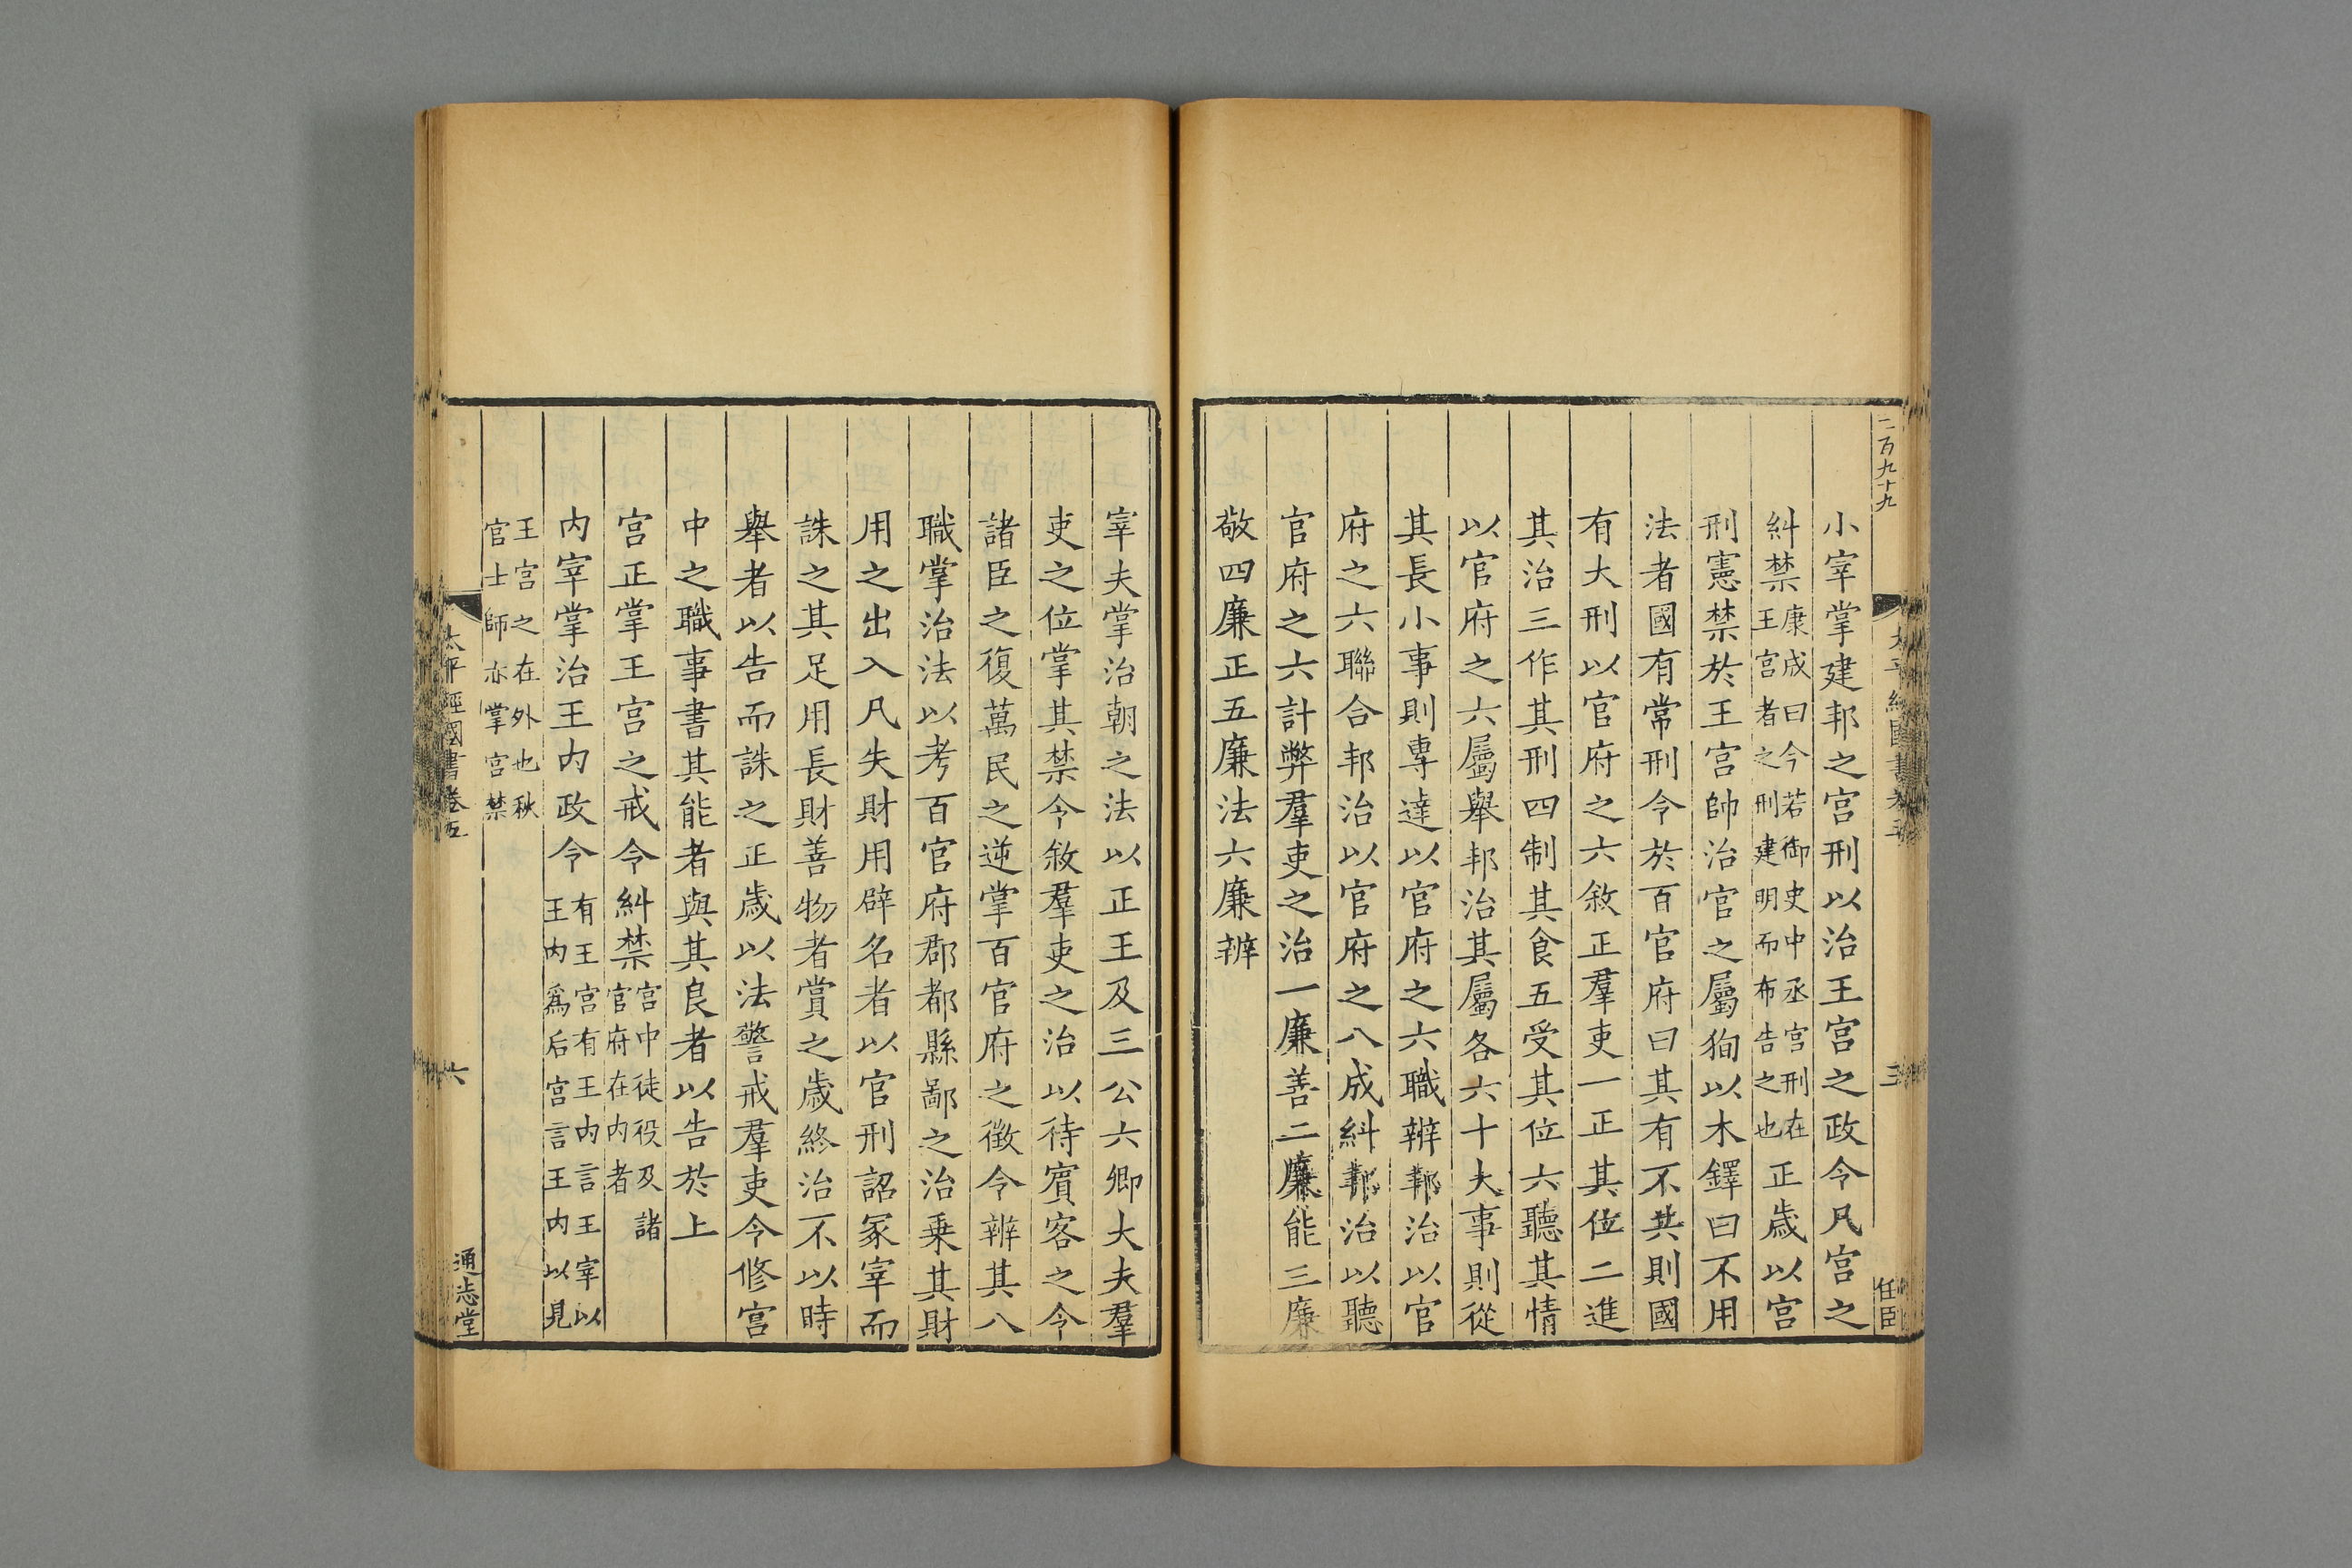 二百九十九
小宰掌建邦之宫刑以治王宫之政令凡宫之
糾禁康成曰今若御史中丞宫刑在王宫者之刑建明而布告之也正歲以宫
刑憲禁於王宫帥治官之屬狥以木鐸曰不用
法者國有常刑令於百官府曰其有不共則國
有大刑以官府之六敘正羣吏一正其位二進
其治三作其刑四制其食五受其位六聽其情
以官府之六屬舉邦治其屬各六十大事則從
其長小事則專達以官府之六職辨邦治以官
府之六聯合邦治以官府之八成糾邦治以聽
官府之六計弊羣吏之治一廉善二廉能三廉
敬四廉正五廉法六廉辨
宰夫掌治朝之法以正王及三公六卿大夫羣
吏之位掌其禁令敘羣吏之治以待賔客之令
諸臣之復萬民之逆掌百官府之徵令辨其八
職掌治法以考百官府郡都縣鄙之治乗其財
用之出入凡失財用辟名者以官刑詔冢宰而
誅之其足用長財善物者賞之歲終治不以時
舉者以告而誅之正歲以法警戒羣吏令修宫
中之職事書其能者與其良者以告於上
宫正掌王宫之戒令糾禁宫中徒役及諸官府在内者
内宰掌治王内政令有王宫有王内言王宰以王内爲后宫言王内以見
王宫之在外也秋官士師亦掌宫禁
太平經國書卷五
六
通志堂